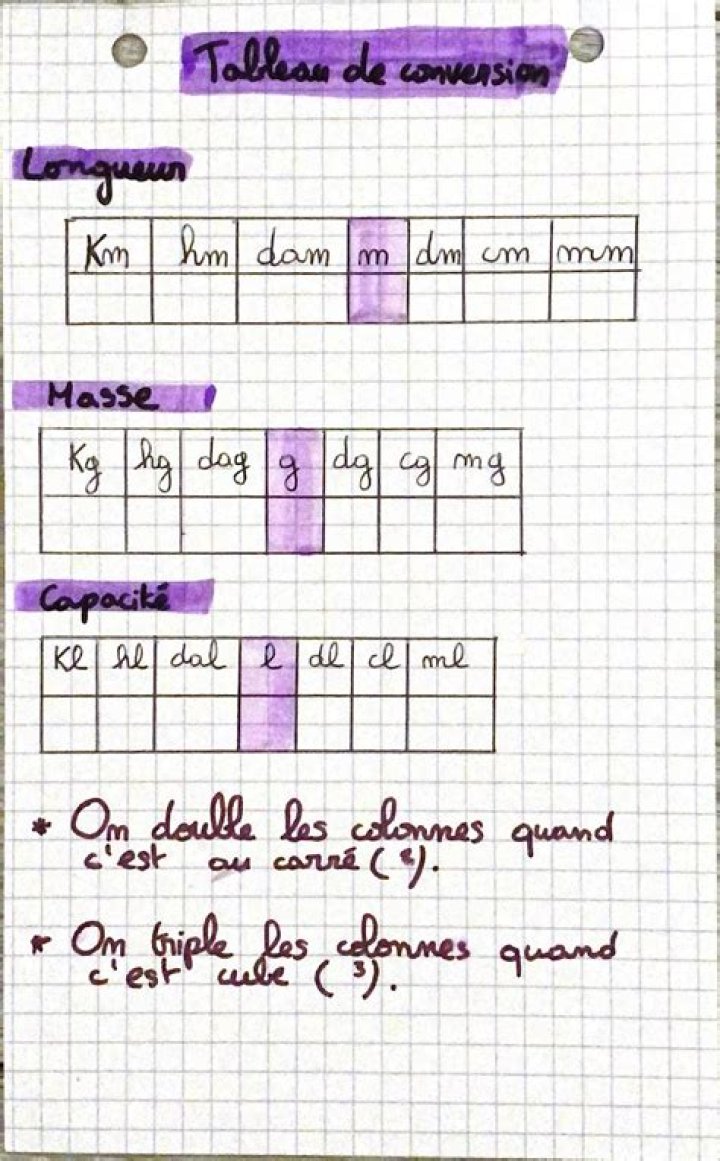 Tableau de conversion
Longueur
Km hm dam m dm cm mm
Masse
Kg hg dag g dg cg mg
Capacité
Kl hl dal l dl cl ml
* On double les colonnes quand
c'est au carré (²).
* On triple les colonnes quand
c'est cube (³).